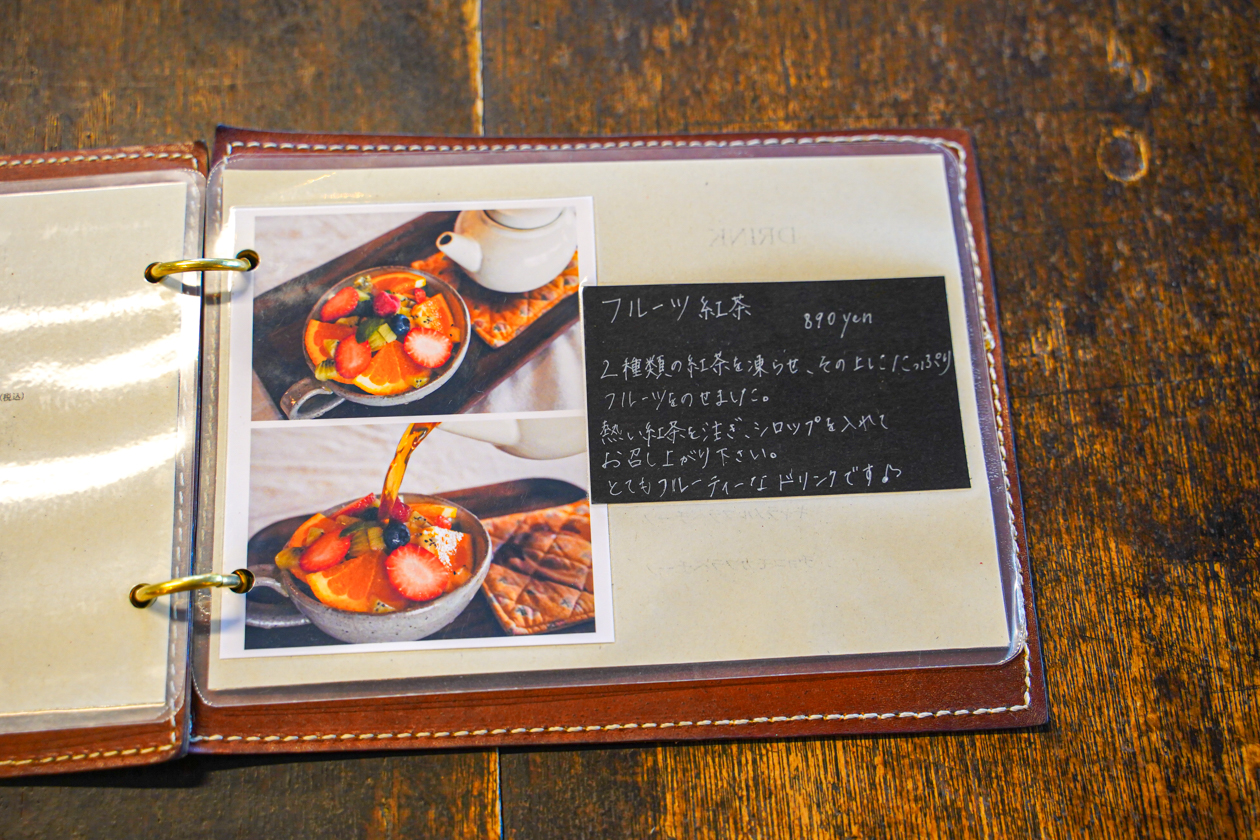 (税込)
DRINK
フルーツ紅茶
890yen
2種類の紅茶を凍らせ、その上にたっぷり
フルーツをのせました。
熱い紅茶を注ぎ、シロップを入れて
お召し上がり下さい。
とてもフルーティーなドリンクです♪